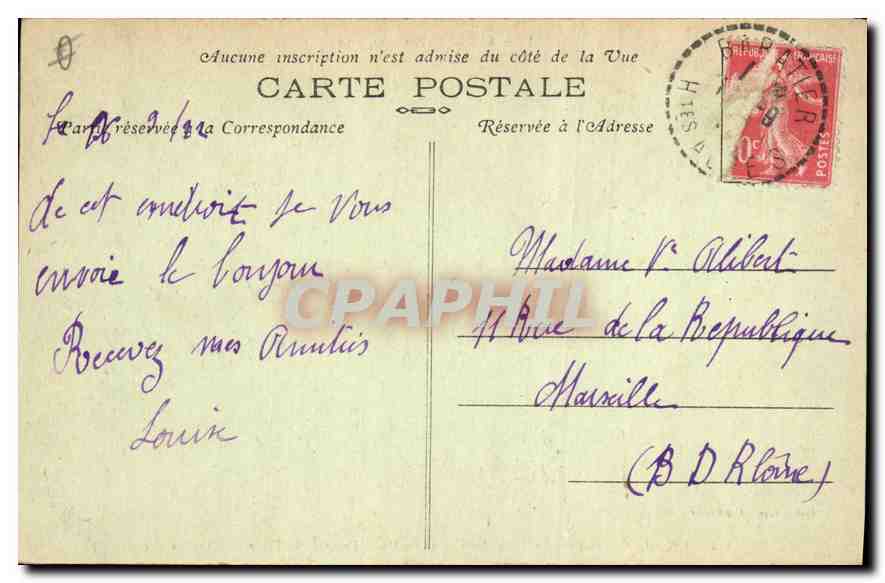 Aucune inscription n'est admise du côté de la Vue
CARTE POSTALE
Carte réservée à la Correspondance
Réservée à l'Adresse
RÉPUBLIQUE FRANÇAISE
POSTES
0c
BARATIER
Htes ALPES
Le 26 9/22
de cet endroit je vous
envoie le bonjour
Recevez mes Amitiés
Louise
Madame Ve Alibert
11 Rue de la République
Marseille
(B D Rhône)
CPAPHIL